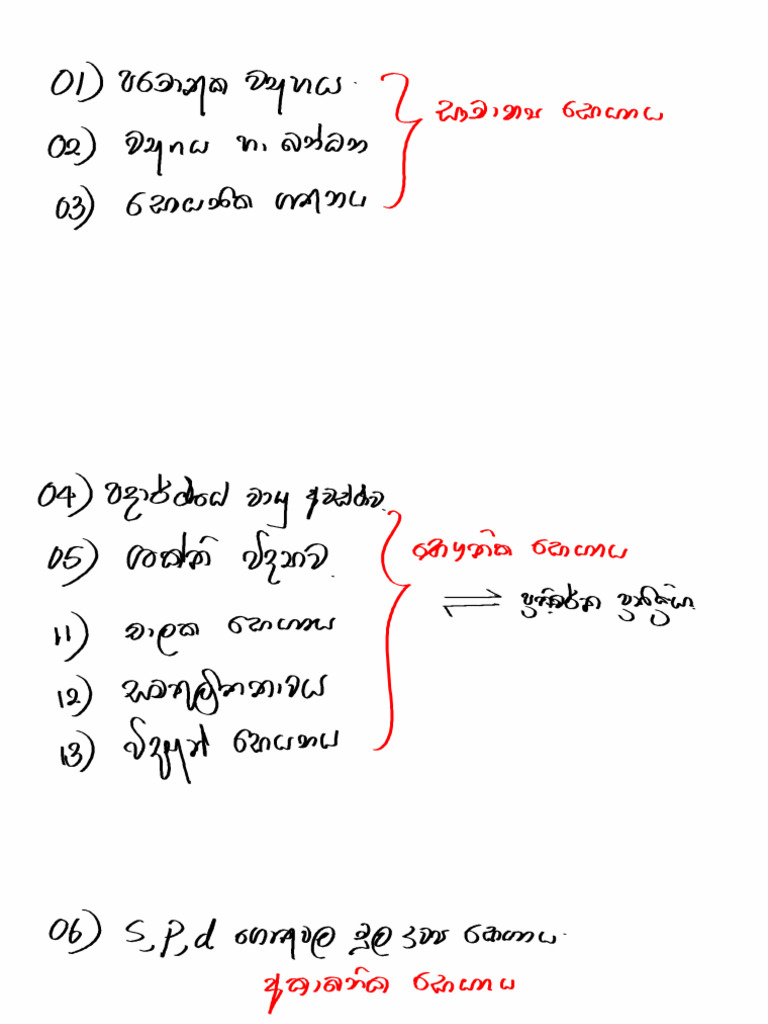 01) පරමාණුක ව්‍යුහය
සාමාන්‍ය රසායනය
02) ව්‍යුහය හා බන්ධන
03) රසායනික ගණනය
04) පදාර්ථයේ වායු අවස්ථාව
05) ශක්ති විද්‍යාව
භෞතික රසායනය
⇌ ප්‍රතිවර්ත්‍ය ප්‍රතික්‍රියා
11) චාලක රසායනය
12) සමතුලිතතාවය
13) විද්‍යුත් රසායනය
06) S, P, d ගොනුවල මූල ද්‍රව්‍ය රසායනය
අකාබනික රසායනය